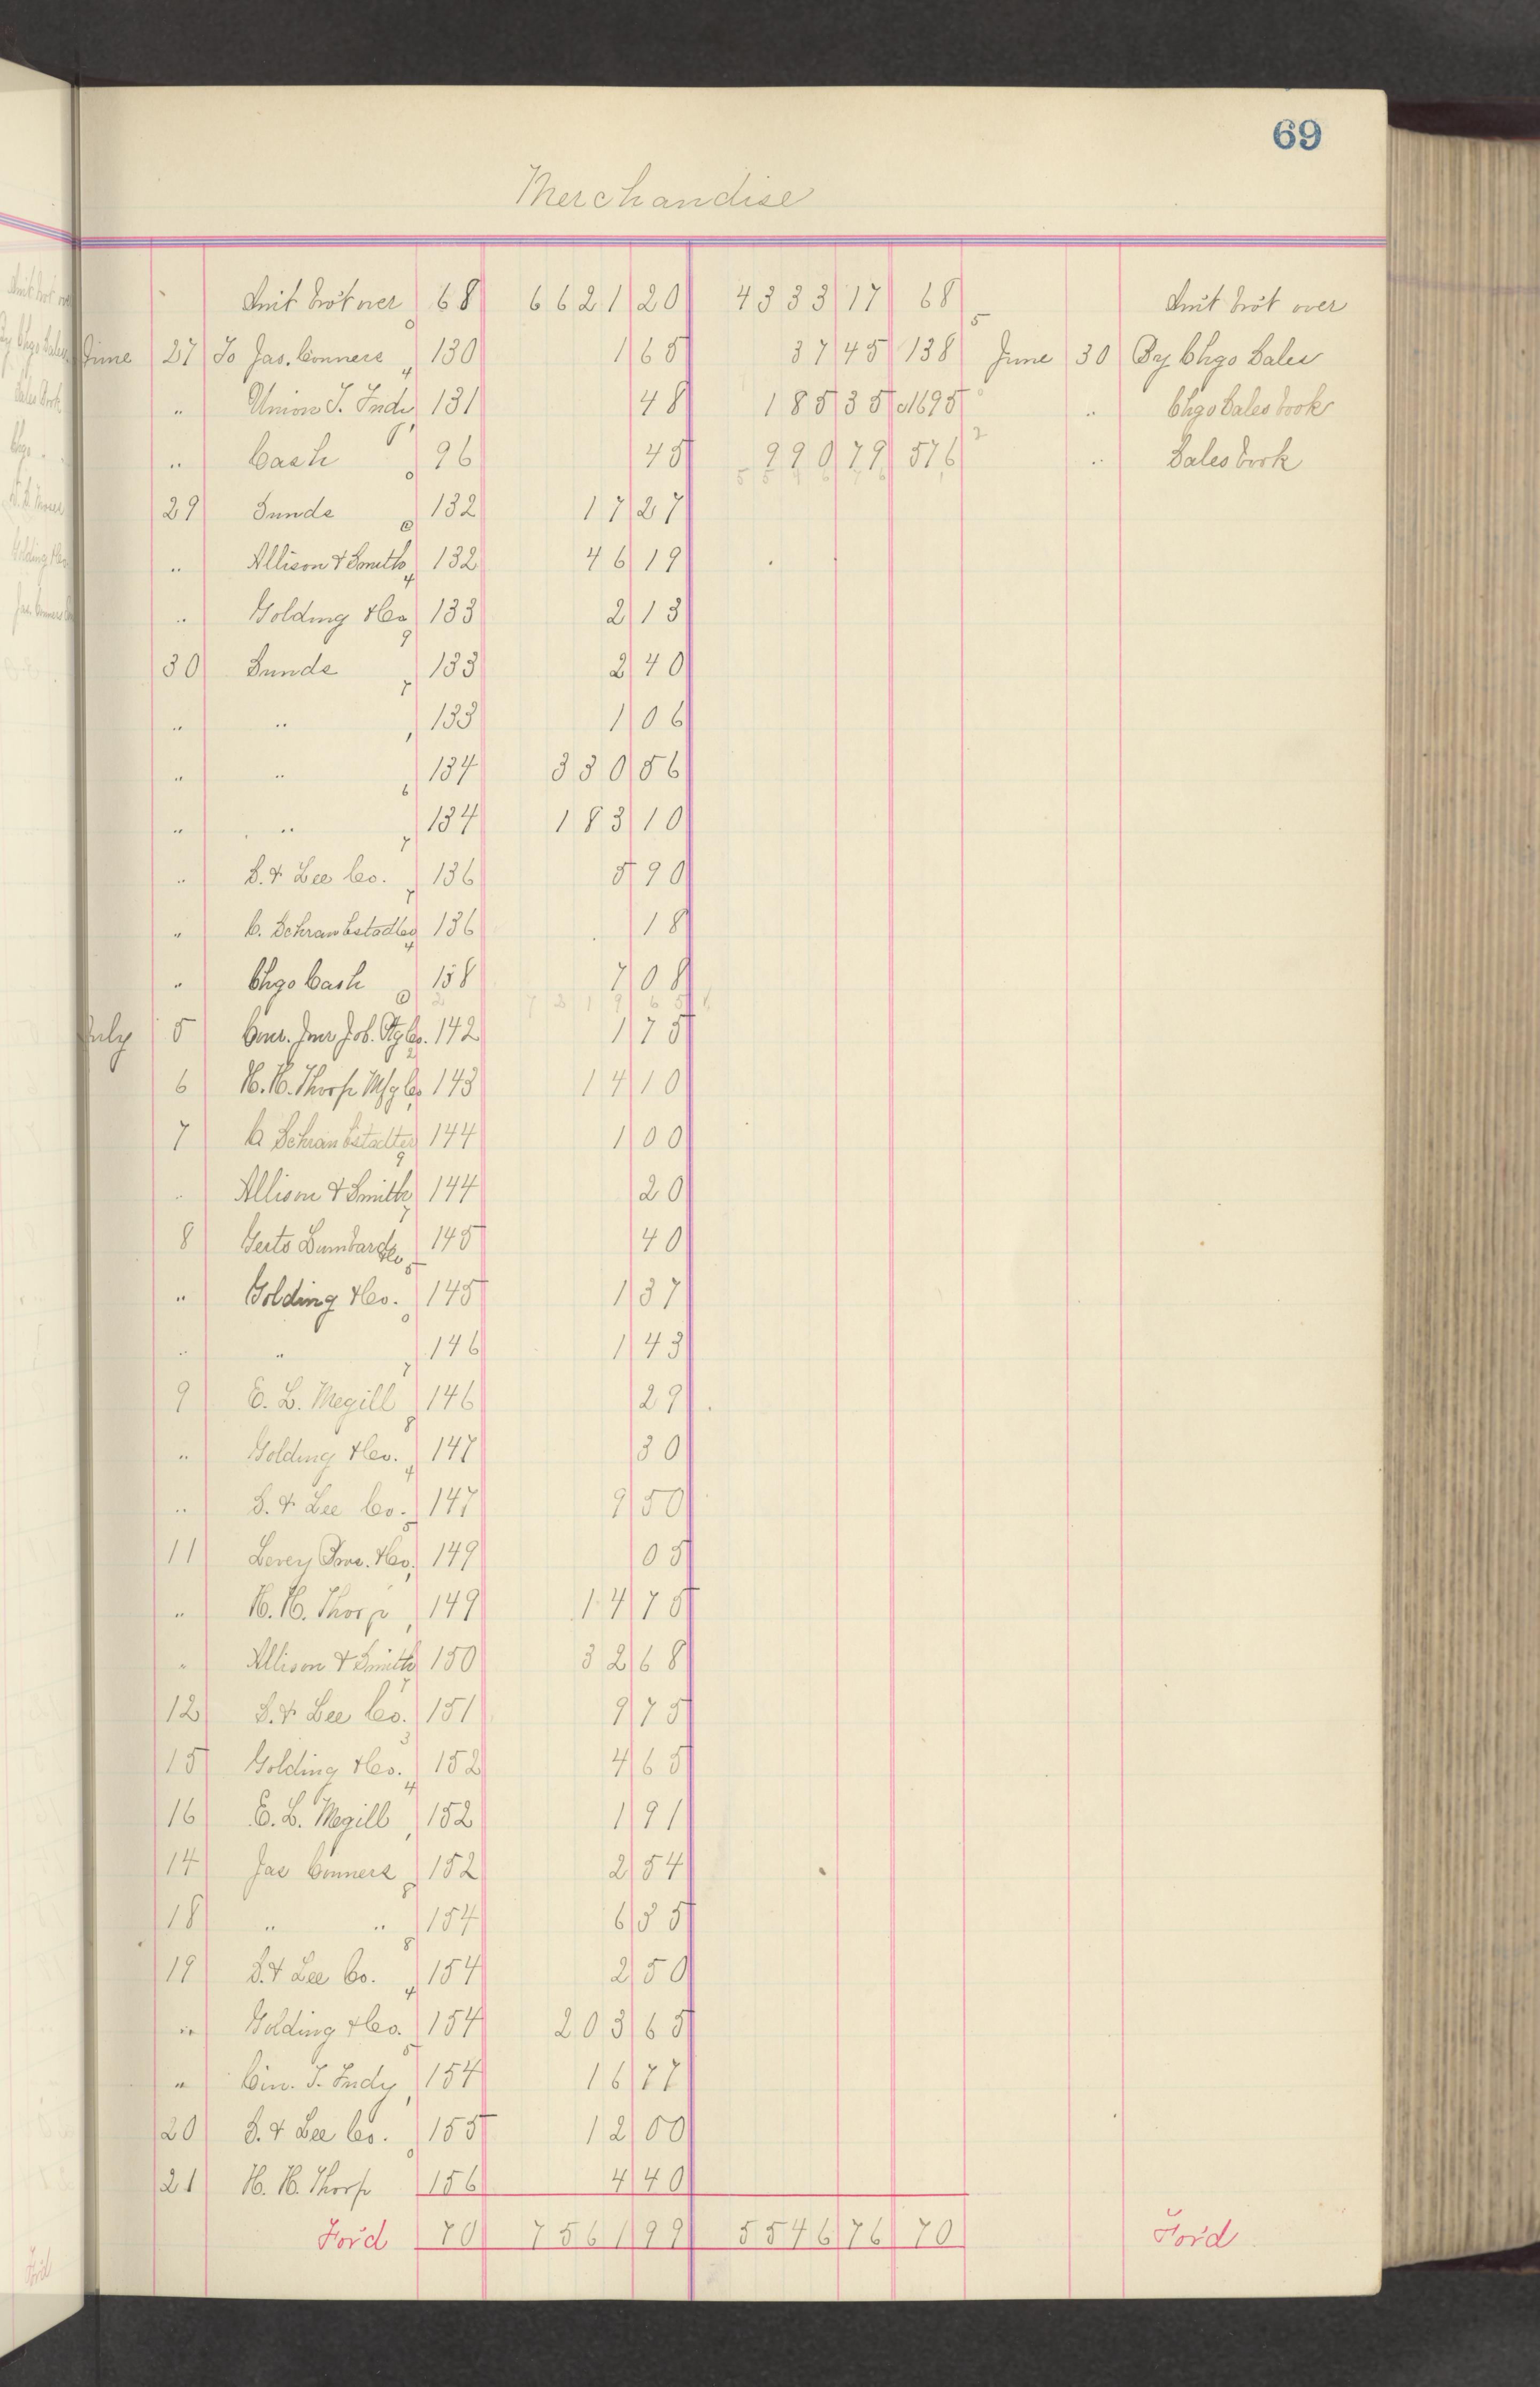 69
Merchandise
Amt brôt over 68 6621 20 4333 17 68 Amt brôt over
June 27 To Jas. Conners 130 1 65 37 45 138 June 30 By Chgo Sales
" Union T. Fndy 131 48 185 35 1695 " Chgo Sales book
" Cash 96 45 990 79 576 " Sales book
29 Sunds 132 17 27
" Allison & Smith 132 46 19
" Golding & Co 133 2 13
30 Sunds 133 2 40
" " 133 1 06
" " 134 330 56
" " 134 183 10
" S. & Lee Co. 136 5 90
" C. Schraubstadter 136 18
" Chgo Cash 138 7 08
7319 65
July 5 142 1 75
6 H. H. Thorp Mfg Co 143 14 10
7 C Schraubstadter 144 1 00
" Allison & Smith 144 20
8 Gerts Lumbard & Co 145 40
" Golding & Co. 145 1 37
" " 146 1 43
9 E. L. Megill 146 29
" Golding & Co. 147 30
" S. & Lee Co. 147 9 50
11 Levey Bro. & Co. 149 05
" H. H. Thorp 149 14 75
" Allison & Smith 150 32 68
12 S. & Lee Co. 151 9 75
15 Golding & Co. 152 4 65
16 E. L. Megill 152 1 91
14 Jas Conners 152 2 54
18 " " 154 6 55
19 S. & Lee Co. 154 2 50
" Golding & Co. 154 203 65
" Cin. T. Fndy 154 16 77
20 S. & Lee Co. 155 12 00
21 H. H. Thorp 156 4 40
For'd 70 7561 99 5546 76 70 For'd